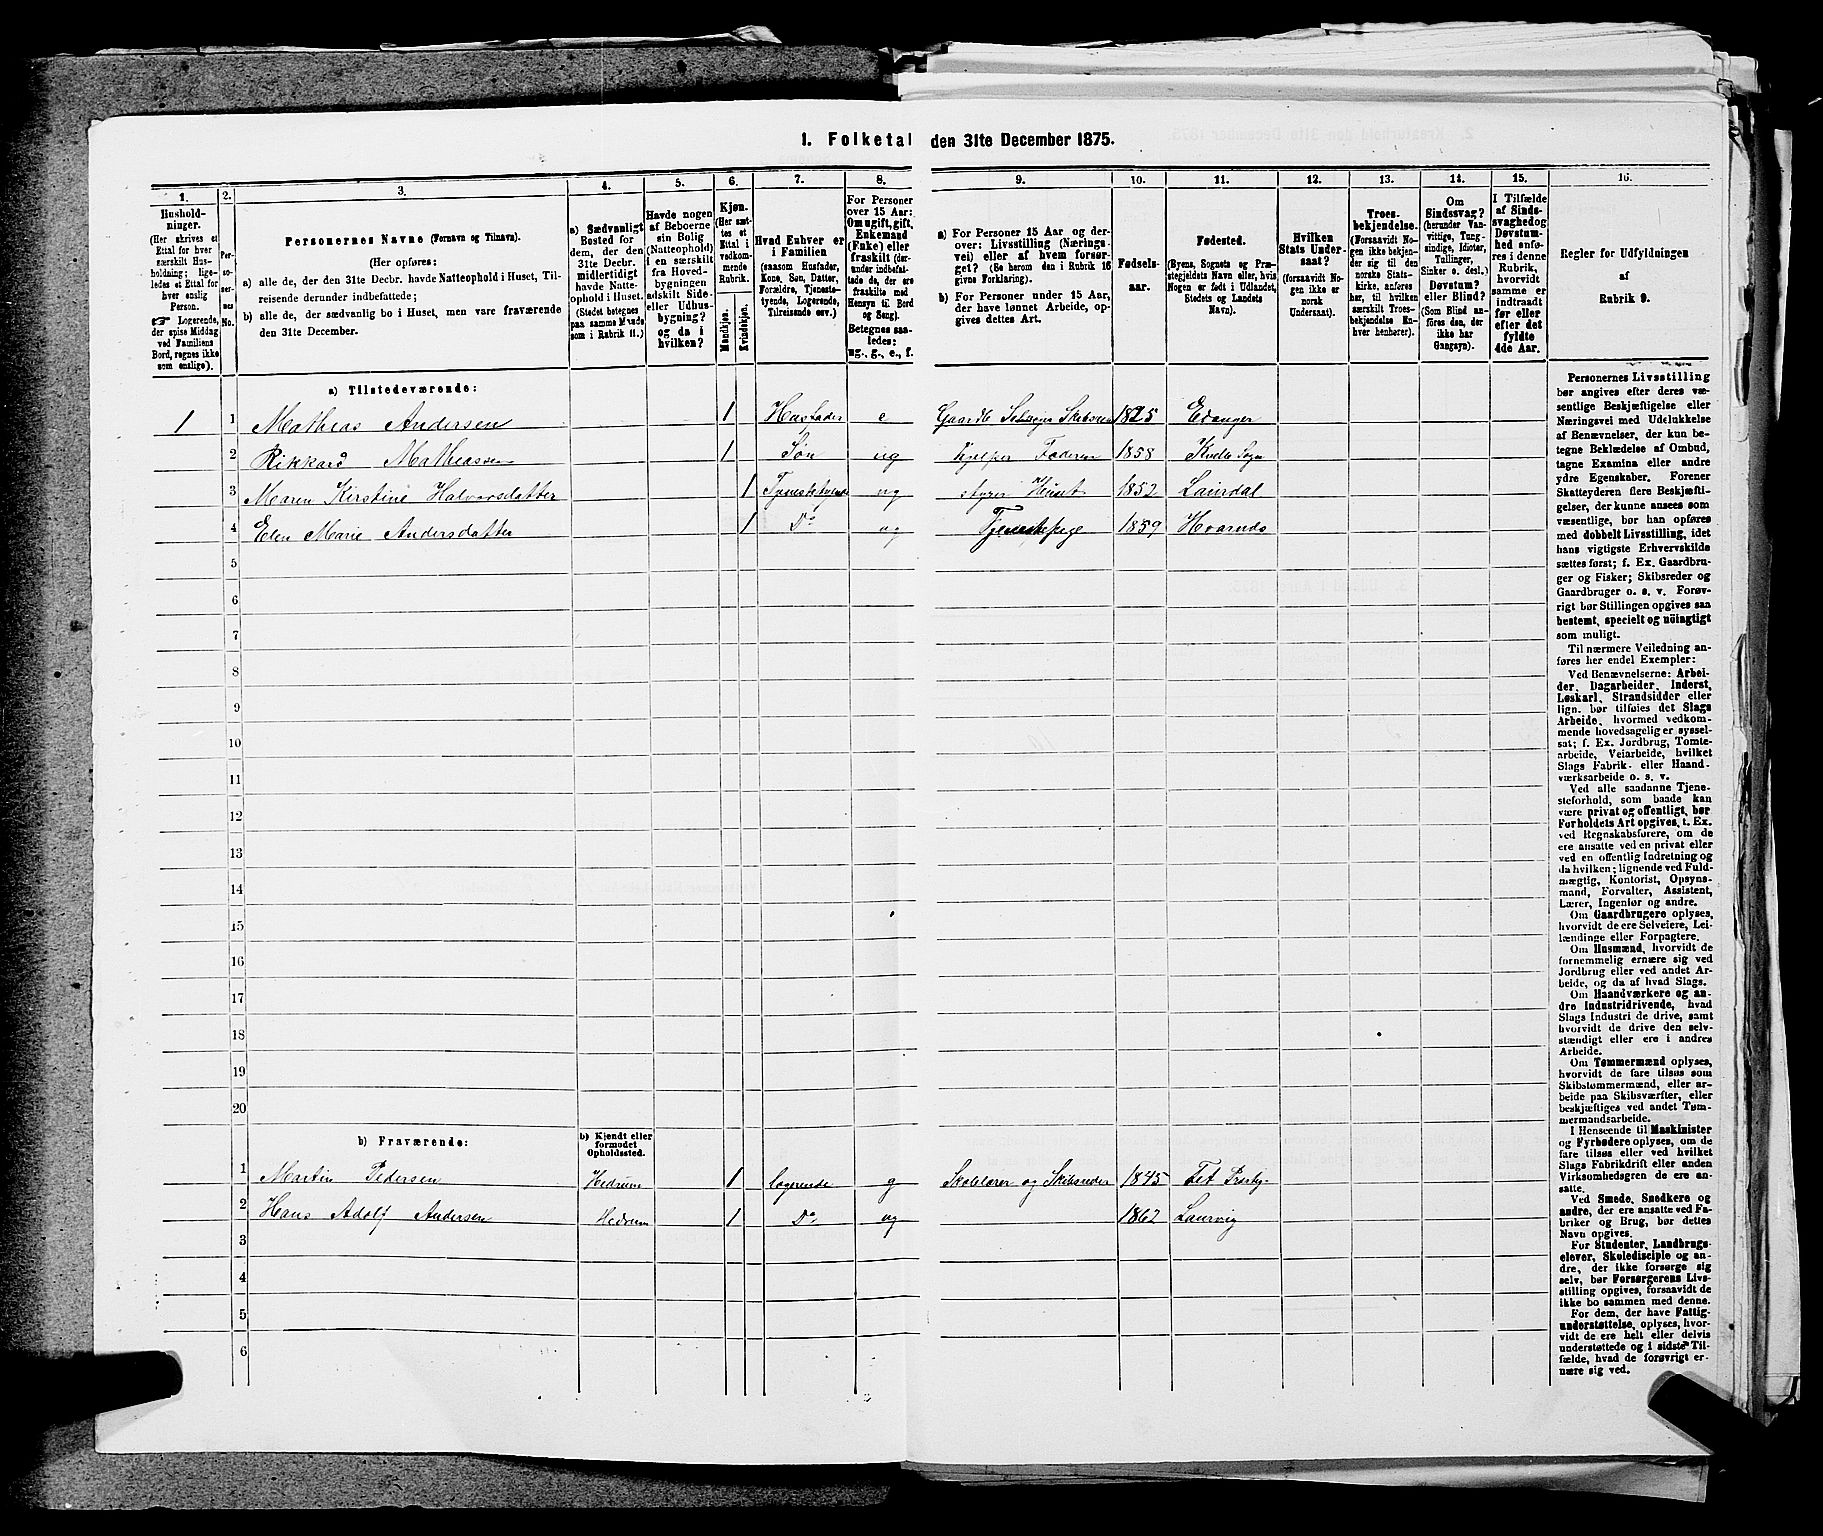 1. Folketal den 31te December 1875.
1. 2. 3. 4. 5. 6. 7. 8. 9. 10. 11. 12. 13. 14. 15. 16.
Hushold-
ninger.
(Her skrives et
Ettal for hver
særskilt Hus-
holdning; lige-
ledes et Ettal for
hver enslig
Person.
☞ Logerende,
der spise Middag
ved Familiens
Bord, regnes ikke
som enslige).
Per-
so-
ner-
nes
No.
Personernes Navne (Fornavn og Tilnavn).
(Her opføres:
a) alle de, der den 31te Decbr. havde Natteophold i Huset, Til-
reisende derunder indbefattede;
b) alle de, der sædvanlig bo i Huset, men vare fraværende
den 31te December.
a) Sædvanligt
Bosted for
dem, der den
31te Decbr.
midlertidigt
havde Natte-
ophold i Huset.
(Stedet betegnes
paa samme Maade
som i Rubrik 11.)
Havde nogen
af Beboerne
sin Bolig
(Natteophold)
i en særskilt
fra Hoved-
bygningen
adskilt Side-
eller Udhus-
bygning?
og da i
hvilken?
Kjøn.
(Her sæt-
tes et
Ettal i
vedkom-
mende
Rubrik.
Mandkjøn.
Kvindekjøn.
Hvad Enhver er
i Familien
(saasom Husfader,
Kone, Søn, Datter,
Forældre, Tjeneste-
tyende, Logerende,
Tilreisende osv.)
For Personer
over 15 Aar:
Om ugift, gift,
Enkemand
(Enke) eller
fraskilt (der-
under indbefat-
tede de, der ere
fraskilte med
Hensyn til Bord
og Seng).
Betegnes saa-
ledes:
ug., g., e., f.
a) For Personer 15 Aar og der-
over: Livsstilling (Nærings-
vei) eller af hvem forsør-
get? (Se herom den i Rubrik 16
givne Forklaring).
b) For Personer under 15 Aar,
der have lønnet Arbeide, op-
gives dettes Art.
Fødsels-
aar.
Fødested.
(Byens, Sognets og Præ-
stegjeldets Navn eller, hvis
Nogen er født i Udlandet,
Stedets og Landets
Navn).
Hvilken
Stats Under-
saat?
(forsaavidt No-
gen ikke er
norsk
Undersaat).
Troes-
bekjendelse.
(Forsaavidt No-
gen ikke bekjen-
der sig til den
norske Stats-
kirke, anføres
her, til hvilken
særskilt Troes-
bekjendelse En-
hver henhører).
Om
Sindssvag?
(herunder Van-
vittige, Tung-
sindige, Idioter,
Tullinger,
Sinker o. desl.)
Døvstum?
eller Blind?
(Som Blind an-
føres den, der
ikke har
Gangsyn).
I Tilfælde
af Sinds-
svaghed og
Døvstum-
hed anfø-
res i denne
Rubrik,
hvorvidt
samme er
indtraadt
før eller
efter det
fyldte
4de Aar.
Regler for Udfyldningen
af
Rubrik 9.
a) Tilstedeværende:
1 1 Mathias Andersen 1 Husfader e Gaardb Selveier 1825 Edanger
2 Rikkard Mathiassen 1 Søn ug hjelper Faderen 1858 Kvelle Sogn
3 Maren Kirstine Halvorsdatter 1 Tjenestetyende ug styrer Huset 1852 Laurdal
4 Elen Marie Andersdatter 1 Do ug Tjenestepige 1859 Hvarnæs
5
6
7
8
9
10
11
12
13
14
15
16
17
18
19
20
b) Fraværende:
b) Kjendt eller
formodet
Opholdssted.
1 Martin Pedersen Hedrum 1 logerende g Skolelærer og Skibsreder 1845 Fet
2 Hans Adolf Andersen Hedrum 1 Do ug 1862 Laurvig
3
4
5
6
Personernes Livsstilling
bør angives efter deres væ-
sentlige Beskjæftigelse eller
Næringsvei med Udelukkelse
af Benævnelser, der kun be-
tegne Beklædelse af Ombud,
tagne Examina eller andre
ydre Egenskaber. Forener
Skatteyderen flere Beskjæfti-
gelser, der kunne ansees som
væsentlige, bør han opføres
med dobbelt Livsstilling, idet
hans vigtigste Erhvervskilde
sættes først; f. Ex. Gaardbru-
ger og Fisker; Skibsreder og
Gaardbruger o. s. v. Forøv-
rigt bør Stillingen opgives saa
bestemt, specielt og nøiagtigt
som muligt.
Til nærmere Veiledning an-
føres her endel Exempler:
Ved Benævnelserne: Arbei-
der, Dagarbeider, Inderst,
Løskarl, Strandsidder eller
lign. bør tilføies det Slags
Arbeide, hvormed vedkom-
mende hovedsagelig er syssel-
sat; f. Ex. Jordbrug, Tomte-
arbeide, Veiarbeide, hvilket
Slags Fabrik- eller Haand-
værksarbeide o. s. v.
Ved alle saadanne Tjene-
steforhold, som baade kan
være privat og offentligt, bør
Forholdets Art opgives, t. Ex.
ved Regnskabsførere, om de
ere ansatte ved en privat eller
ved en offentlig Indretning og
da hvilken; lignende ved Fuld-
mægtig, Kontorist, Opsyns-
mand, Forvalter, Assistent,
Lærer, Ingeniør og andre.
Om Gaardbrugere oplyses,
hvorvidt de ere Selveiere, Lei-
lændinge eller Forpagtere.
Om Husmænd, hvorvidt de
fornemmelig ernære sig ved
Jordbrug eller ved andet Ar-
beide, og da af hvad Slags.
Om Haandværkere og an-
dre Industridrivende, hvad
Slags Industri de drive, samt
hvorvidt de drive den selv-
stændigt eller ere i andres
Arbeide.
Om Tømmermænd oplyses,
hvorvidt de fare tilsøs som
Skibstømmermænd, eller ar-
beide paa Skibsværfter, eller
beskjæftiges ved andet Tøm-
mermandsarbeide.
I Henseende til Maskinister
og Fyrbødere oplyses, om de
fare tilsøs eller ved hvilket
Slags Fabrikdrift eller anden
Virksomhedsgren de ere an-
satte.
Ved Smede, Snedkere og
andre, der ere ansatte ved Fa-
briker og Brug, bør dettes
Navn opgives.
For Studenter, Landbrugs-
elever, Skoledisciple og an-
dre, der ikke forsørge sig
selv, bør Forsørgerens Livs-
stilling opgives, forsaavidt de
ikke bo sammen med denne.
For dem, der have Fattig-
understøttelse, oplyses, hvor-
vidt de ere helt eller delvis
understøttede og i sidste Til-
fælde, hvad de forøvrigt er-
nære sig ved.